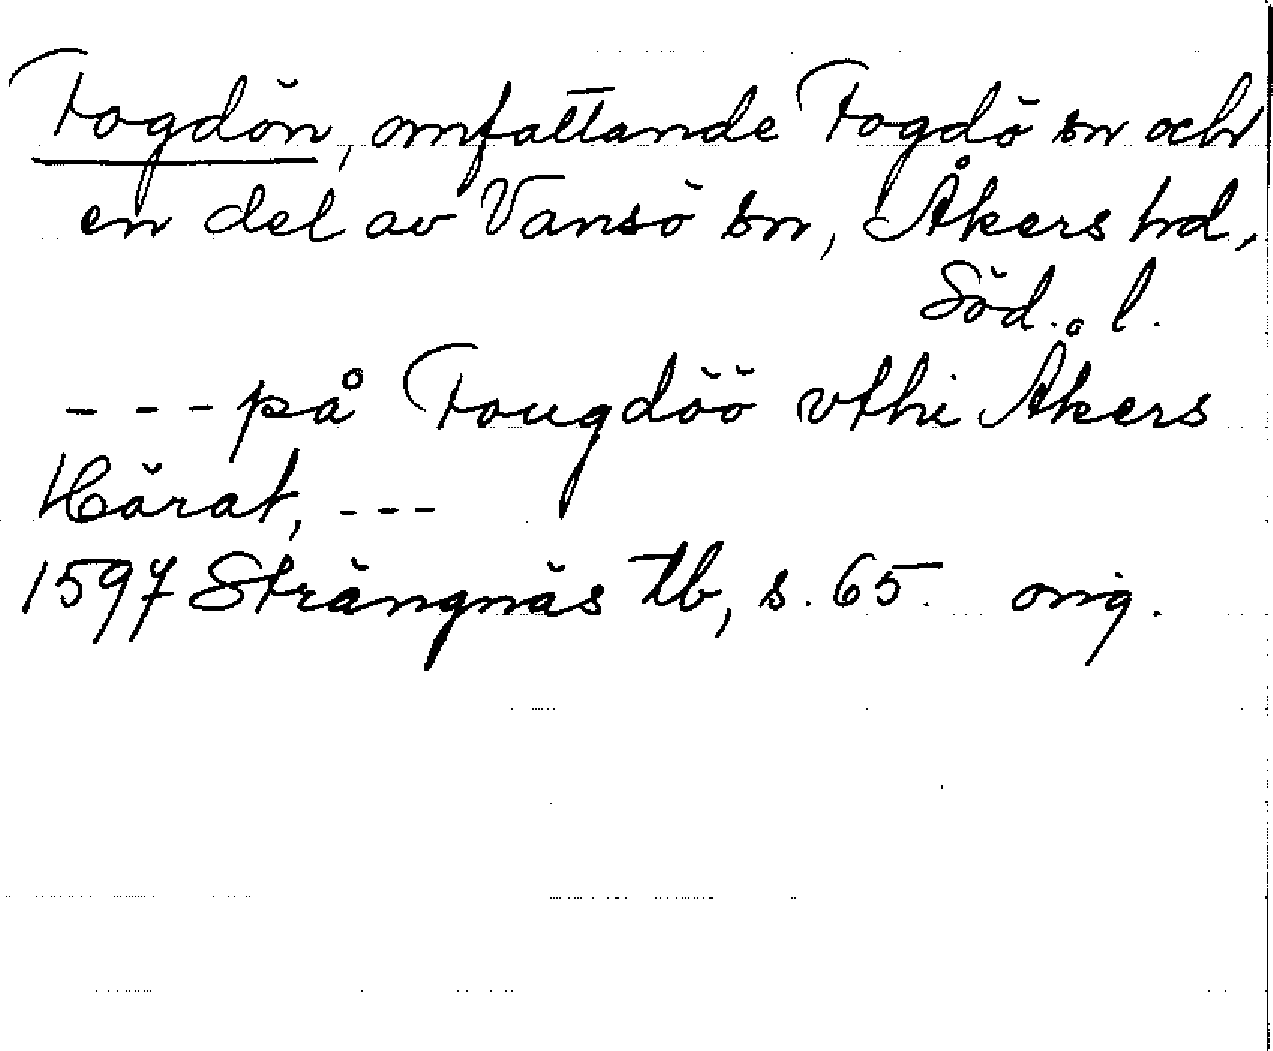 Fogdön, omfattande Fogdö sn och
en del av Vansö sn, Åkers hd,
Söd. l.
--- på Fougdöö vthi Åkers
Härat, ---
1597 Strängnäs tb, s. 65. orig.